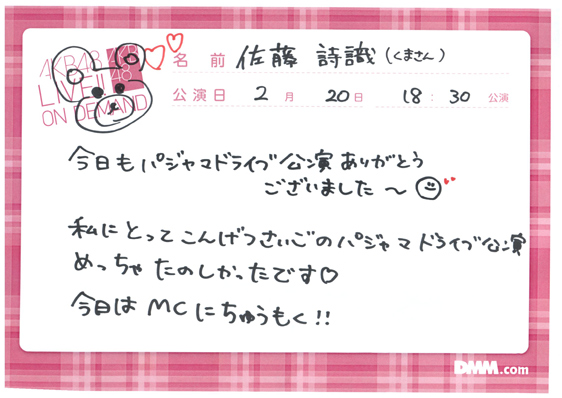 AKB48
LIVE!!
ON DEMAND
AKB
48
名前 佐藤 詩識 (くまさん)
公演日 2月 20日 18:30 公演
今日も パジャマドライブ 公演 ありがとう
ございました〜
私に とって こんげつさいごの パジャマドライブ公演
めっちゃ たのしかったです♡
今日は MCに ちゅうもく!!
DMM.com